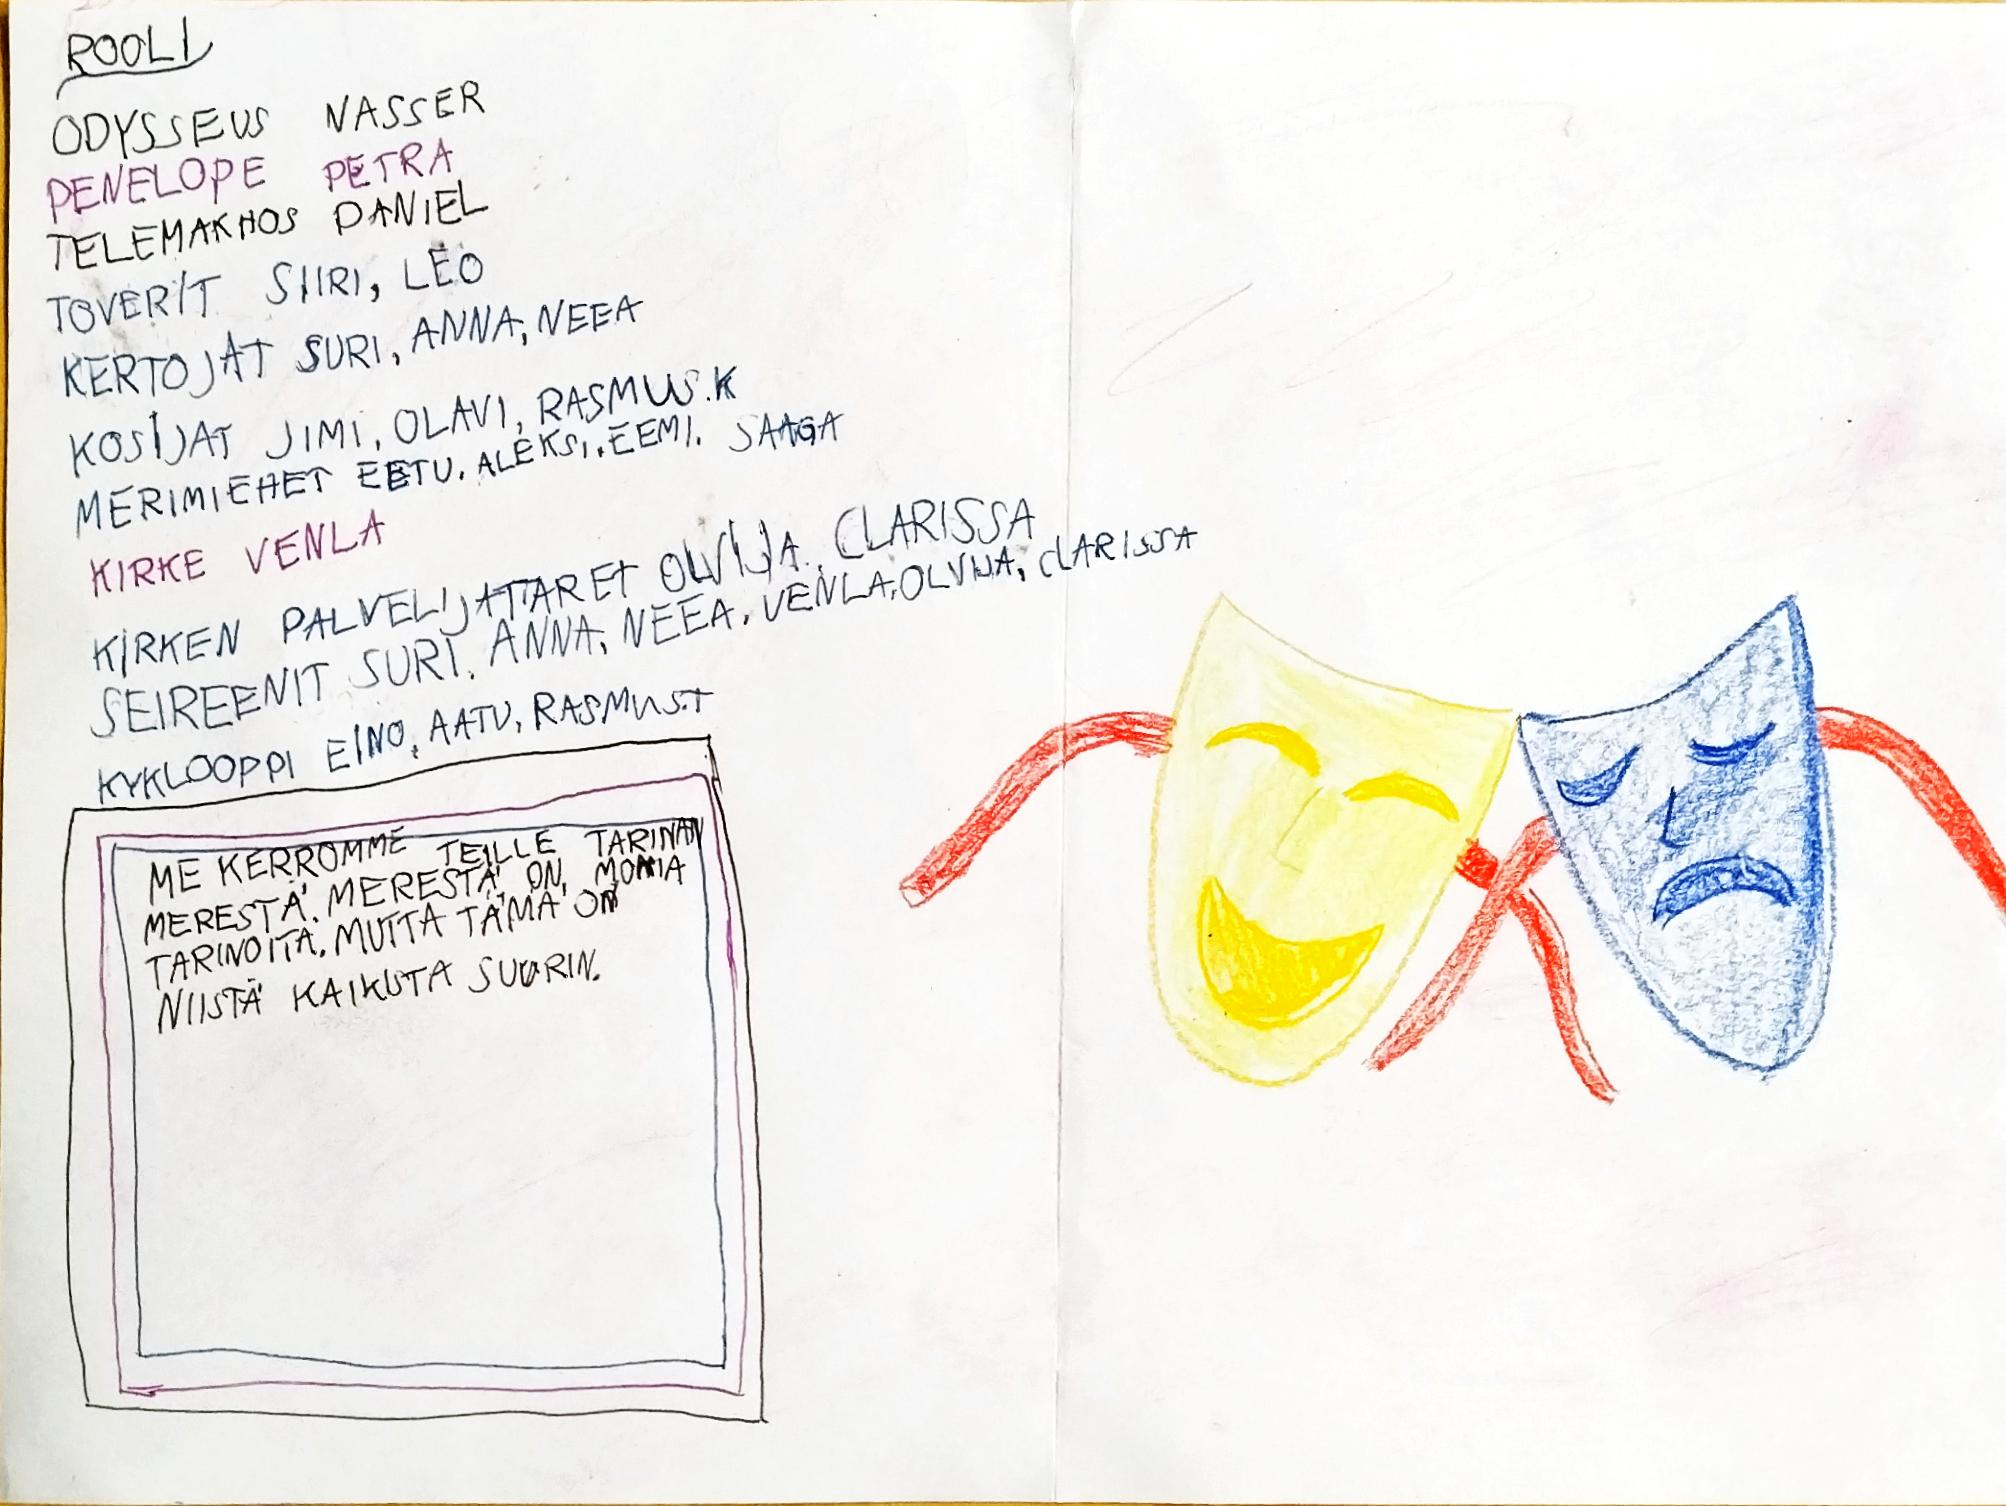 ROOLI
ODYSSEUS NASSER
PENELOPE PETRA
TELEMAKHOS DANIEL
TOVERIT SIIRI, LEO
KERTOJAT SURI, ANNA, NEEA
KOSIJAT JIMI, OLAVI, RASMUS.K
MERIMIEHET EETU. ALEKSI. EEMI. SAAGA
KIRKE VENLA
KIRKEN PALVELIJATTARET OLVIJA. CLARISSA
SEIREENIT SURI. ANNA, NEEA. VENLA, OLVIJA, CLARISSA
KYKLOOPPI EINO, AATU, RASMUS.T
ME KERROMME TEILLE TARINAN
MERESTÄ. MERESTÄ ON MONIA
TARINOITA. MUTTA TÄMÄ ON
NIISTÄ KAIKISTA SUURIN.